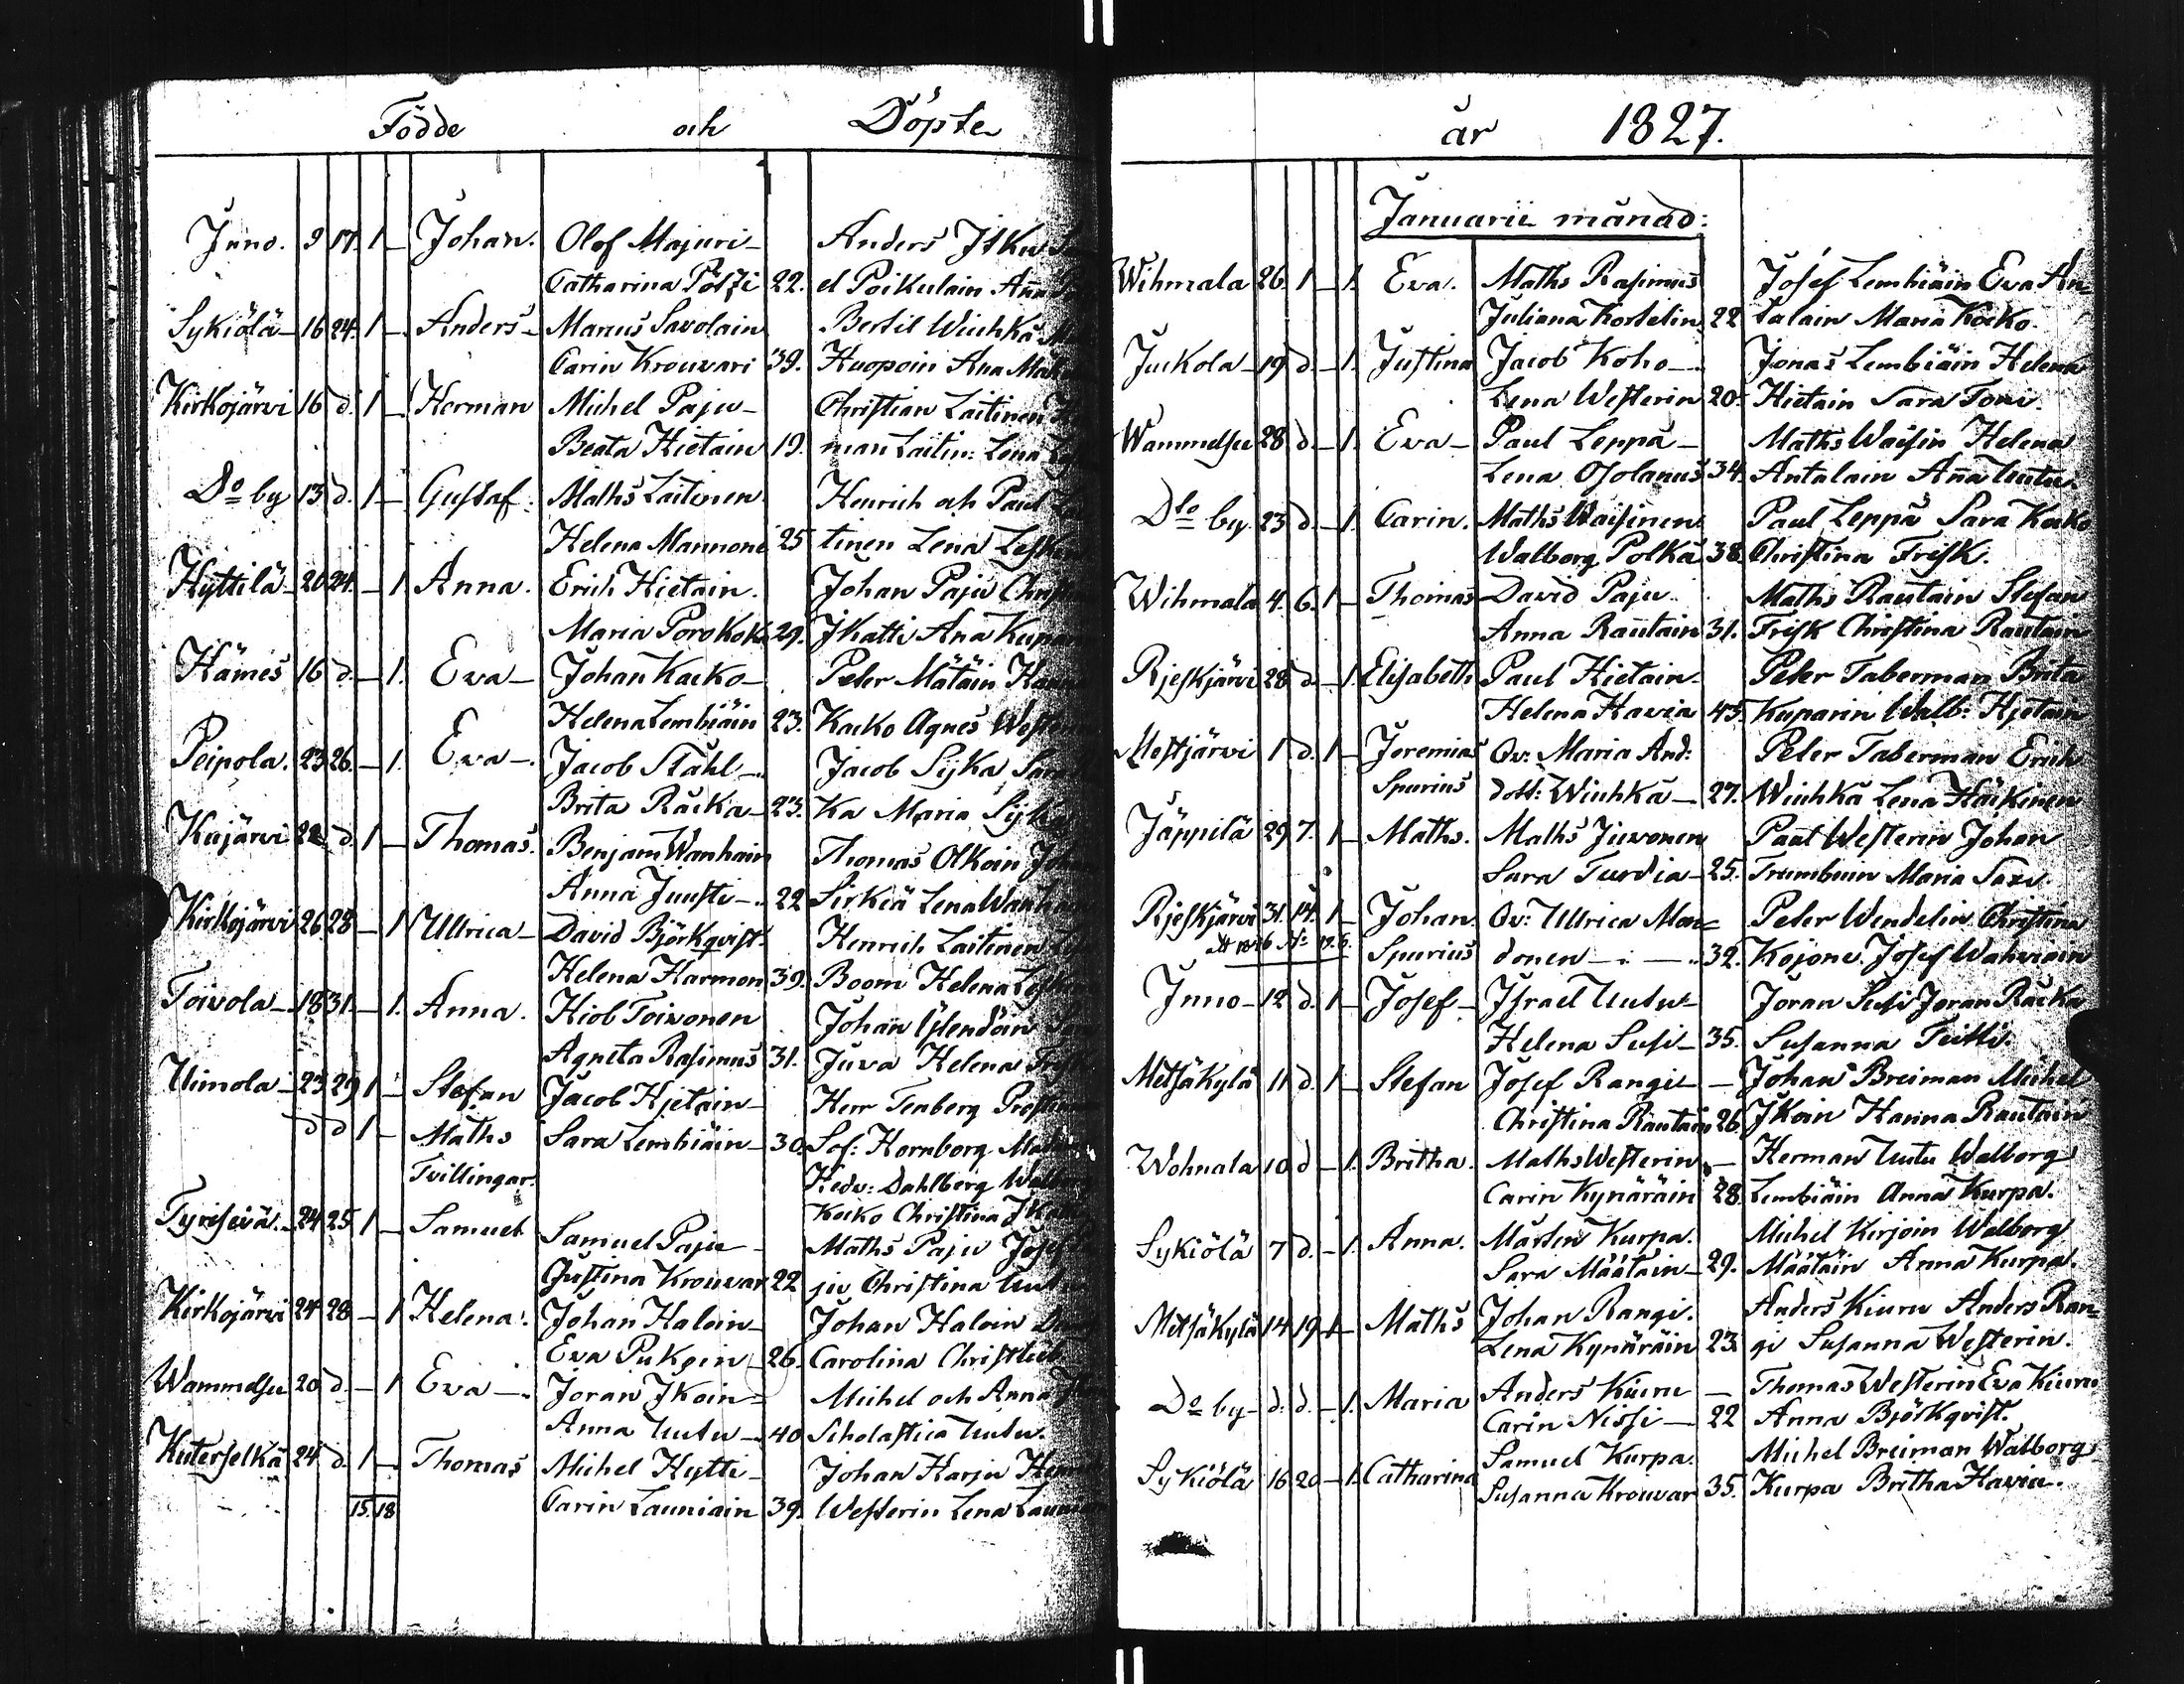 Födde och Döpte
Inno. 9 17. 1 – Johan. Olof Majuri – Anders Itku
Catharina Pölzi 22. el Poikulain Anna
Sykiölä – 16 24. 1 – Anders – Marcus Savolain Bertil Wiuhka
Carin Krouvari 39. Huopoin Ana
Kirkojärvi 16 d. 1 – Herman Michel Paju – Christian Laitinen
Beata Hietain 19. man Laitin: Lena
Do by 13 d. 1 – Gustaf. Maths Laitinen Henrich och Paul
Helena Mannoni 25 tinen Lena
Hyttilä – 20 24. – 1 Anna. Erich Hietain. Johan Paju
Maria Porokok 29. Ikatti Ana
Hämes 16 d. – 1. Eva – Johan Kacko – Peter Mätäin
Helena Lembiäin 23. Kacko Agnes
Peipola. 23 26. – 1. Eva –. Jacob Ståhl –. Jacob Sijka
Brita Räcka – 23. Ka Maria
Kujärvi 22 d. 1 – Thomas. Benjam Wanhain Thomas Olkoin
Anna Juusti –. 22 Sirkiä Lena
Kirkojärvi 26. 28 – 1 Ullrica – David Björkqvist. Henrich Laitinen
Helena Harmon 39. Boom Helena
Toivola – 18 31. – 1. Anna. Hiob Toivonen Johan Ylendöin
Agneta Rasimus 31. Juva Helena
Uimola – 23 29 1 – Stefan Jacob Hjetain – Herr Tenberg
d d 1 – Maths Sara Lembiäin – 30. Sof: Hornborg
Tvillingar. Hedv: Dahlberg
Kocko Christina
Tyrisevä. – 24 25 1 – Samuel Samuel Paju – Maths Paju Josef
Gustina Krouvar 22 ju Christina
Kirkojärvi 24 28 – 1 Helena. Johan Haloin – Johan Haloin
Eva Pukoin – 26. Carolina
Wammelsu 20 d. – 1 Eva –. Joran Ikoin – Michel och Anna
Anna Uutu – 40 Scholastica Uutu.
Kuterselkä 24 d. 1 – Thomas Michel Hytti – Johan Harju
15. 18 Carin Launiain 39. Westerin Lena
år 1827.
Januarii månad:
Wihmala 26. 1 – 1. Eva. Maths Rasimus Josef Lembiäin Eva An=
Juliana Kostelin 22 talain Maria Kocko.
Juckola – 19 d. – 1. Justina Jacob Koho –. Jonas Lembiäin Helena
Lena Westerin 20. Hietain Sara Toivi.
Wammelsu 28 d – 1. Eva – Paul Leppä – Maths Waisin Helena
Lena Osolanus 34. Antalain Anna Uutu.
Dto by 23 d. – 1. Carin. Maths Waisinen Paul Leppä Sara Kocko
Walborg Polka 38. Christina Frisk.
Wihmala 4. 6. 1 – Thomas David Paju. Maths Rautain Stefan
Anna Rautain 31. Frisk Christina Rautain
Rjeskjärvi 28 d. – 1. Elisabeth Paul Hietain. Peter Taberman Brita
Helena Havia 43. Kuparin Walb: Hjetain
Mestjärvi 1 d. 1 – Jeremias Qv: Maria And: Peter Taberman Erich
Spurius dott: Wiuhka – 27. Wiuhka Lena Häikinen
Jäppilä 29 7. 1 – Maths. Maths Juvonen Paul Westerin Johan
Sara Turdia – 25. Trumbuin Maria
Rjeskjärvi 31. 14. 1 – Johan. Qv: Ullrica Mon= Peter Wendelin Christina
Spurius donen – . – . 32. Kojone. Josef Wahviain
Inno – 12 d. 1 – Josef – Israel Uutu – Joran Susi Joran Räcka
Helena Susi – 35. Susanna Teitti.
Metsäkylä 11 d. 1 – Stefan Josef Rangi – – Johan Breiman Michel
Christina Rautain 26. Ikoin Hanna Rautain
Wohnala 10 d – 1. Britha. Maths Westerin – Herman Uutu Walborg
Carin Kynäräin 28. Lembiäin Anna Kurpa.
Sykiölä 7 d. – 1. Anna. Mårten Kurpa. Michel Kirjoin Walborg
Sara Määtäin – 29. Määtäin Anna Kurpa.
Metsäkylä 14 19 1 – Maths Johan Rangi. Anders Kiuru Anders Ran=
Lena Kynäräin 23. gi Susanna Westerin.
Do by – d. d. – 1. Maria Anders Kiuru – Thomas Westerin Eva Kiuru
Carin Nissi – 22 Anna Björkqvist.
Sykiölä 16 20 – 1. Catharina Samuel Kurpa. Michel Breiman Walborg
Susanna Krouvar 35. Kurpa Britha Havia.